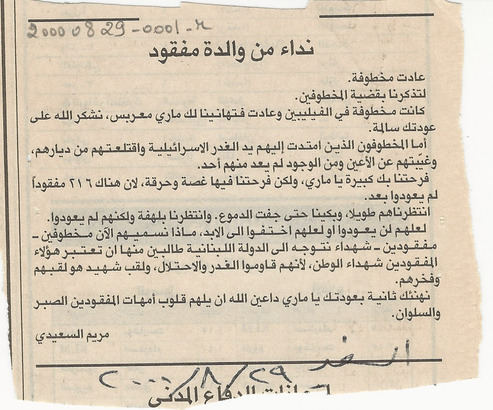 20000829-0001-M
نداء من والدة مفقود
عادت مخطوفة.
لتذكرنا بقضية المخطوفين.
كانت مخطوفة في الفيليبين وعادت فتهانينا لك ماري معربس، نشكر الله على
عودتك سالمة.
أما المخطوفون الذين امتدت إليهم يد الغدر الاسرائيلية واقتلعتهم من ديارهم،
وغيبتهم عن الأعين ومن الوجود لم يعد منهم أحد.
فرحتنا بك كبيرة يا ماري، ولكن فرحتنا فيها غصة وحرقة، لان هناك ٢١٦ مفقوداً
لم يعودوا بعد.
انتظرناهم طويلا، وبكينا حتى جفت الدموع. وانتظرنا بلهفة ولكنهم لم يعودوا.
لعلهم لن يعودوا او لعلهم اختفوا الى الابد، ماذا نسميهم الآن مخطوفين –
مفقودين – شهداء نتوجه الى الدولة اللبنانية طالبين منها ان تعتبر هؤلاء
المفقودين شهداء الوطن، لأنهم قاوموا الغدر والاحتلال، ولقب شهيد هو لقبهم
وفخرهم.
نهنئك ثانية بعودتك يا ماري داعين الله ان يلهم قلوب أمهات المفقودين الصبر
والسلوان.
مريم السعيدي
السفير
٢٠٠٠/٨/٢٩
الدفاع المدني